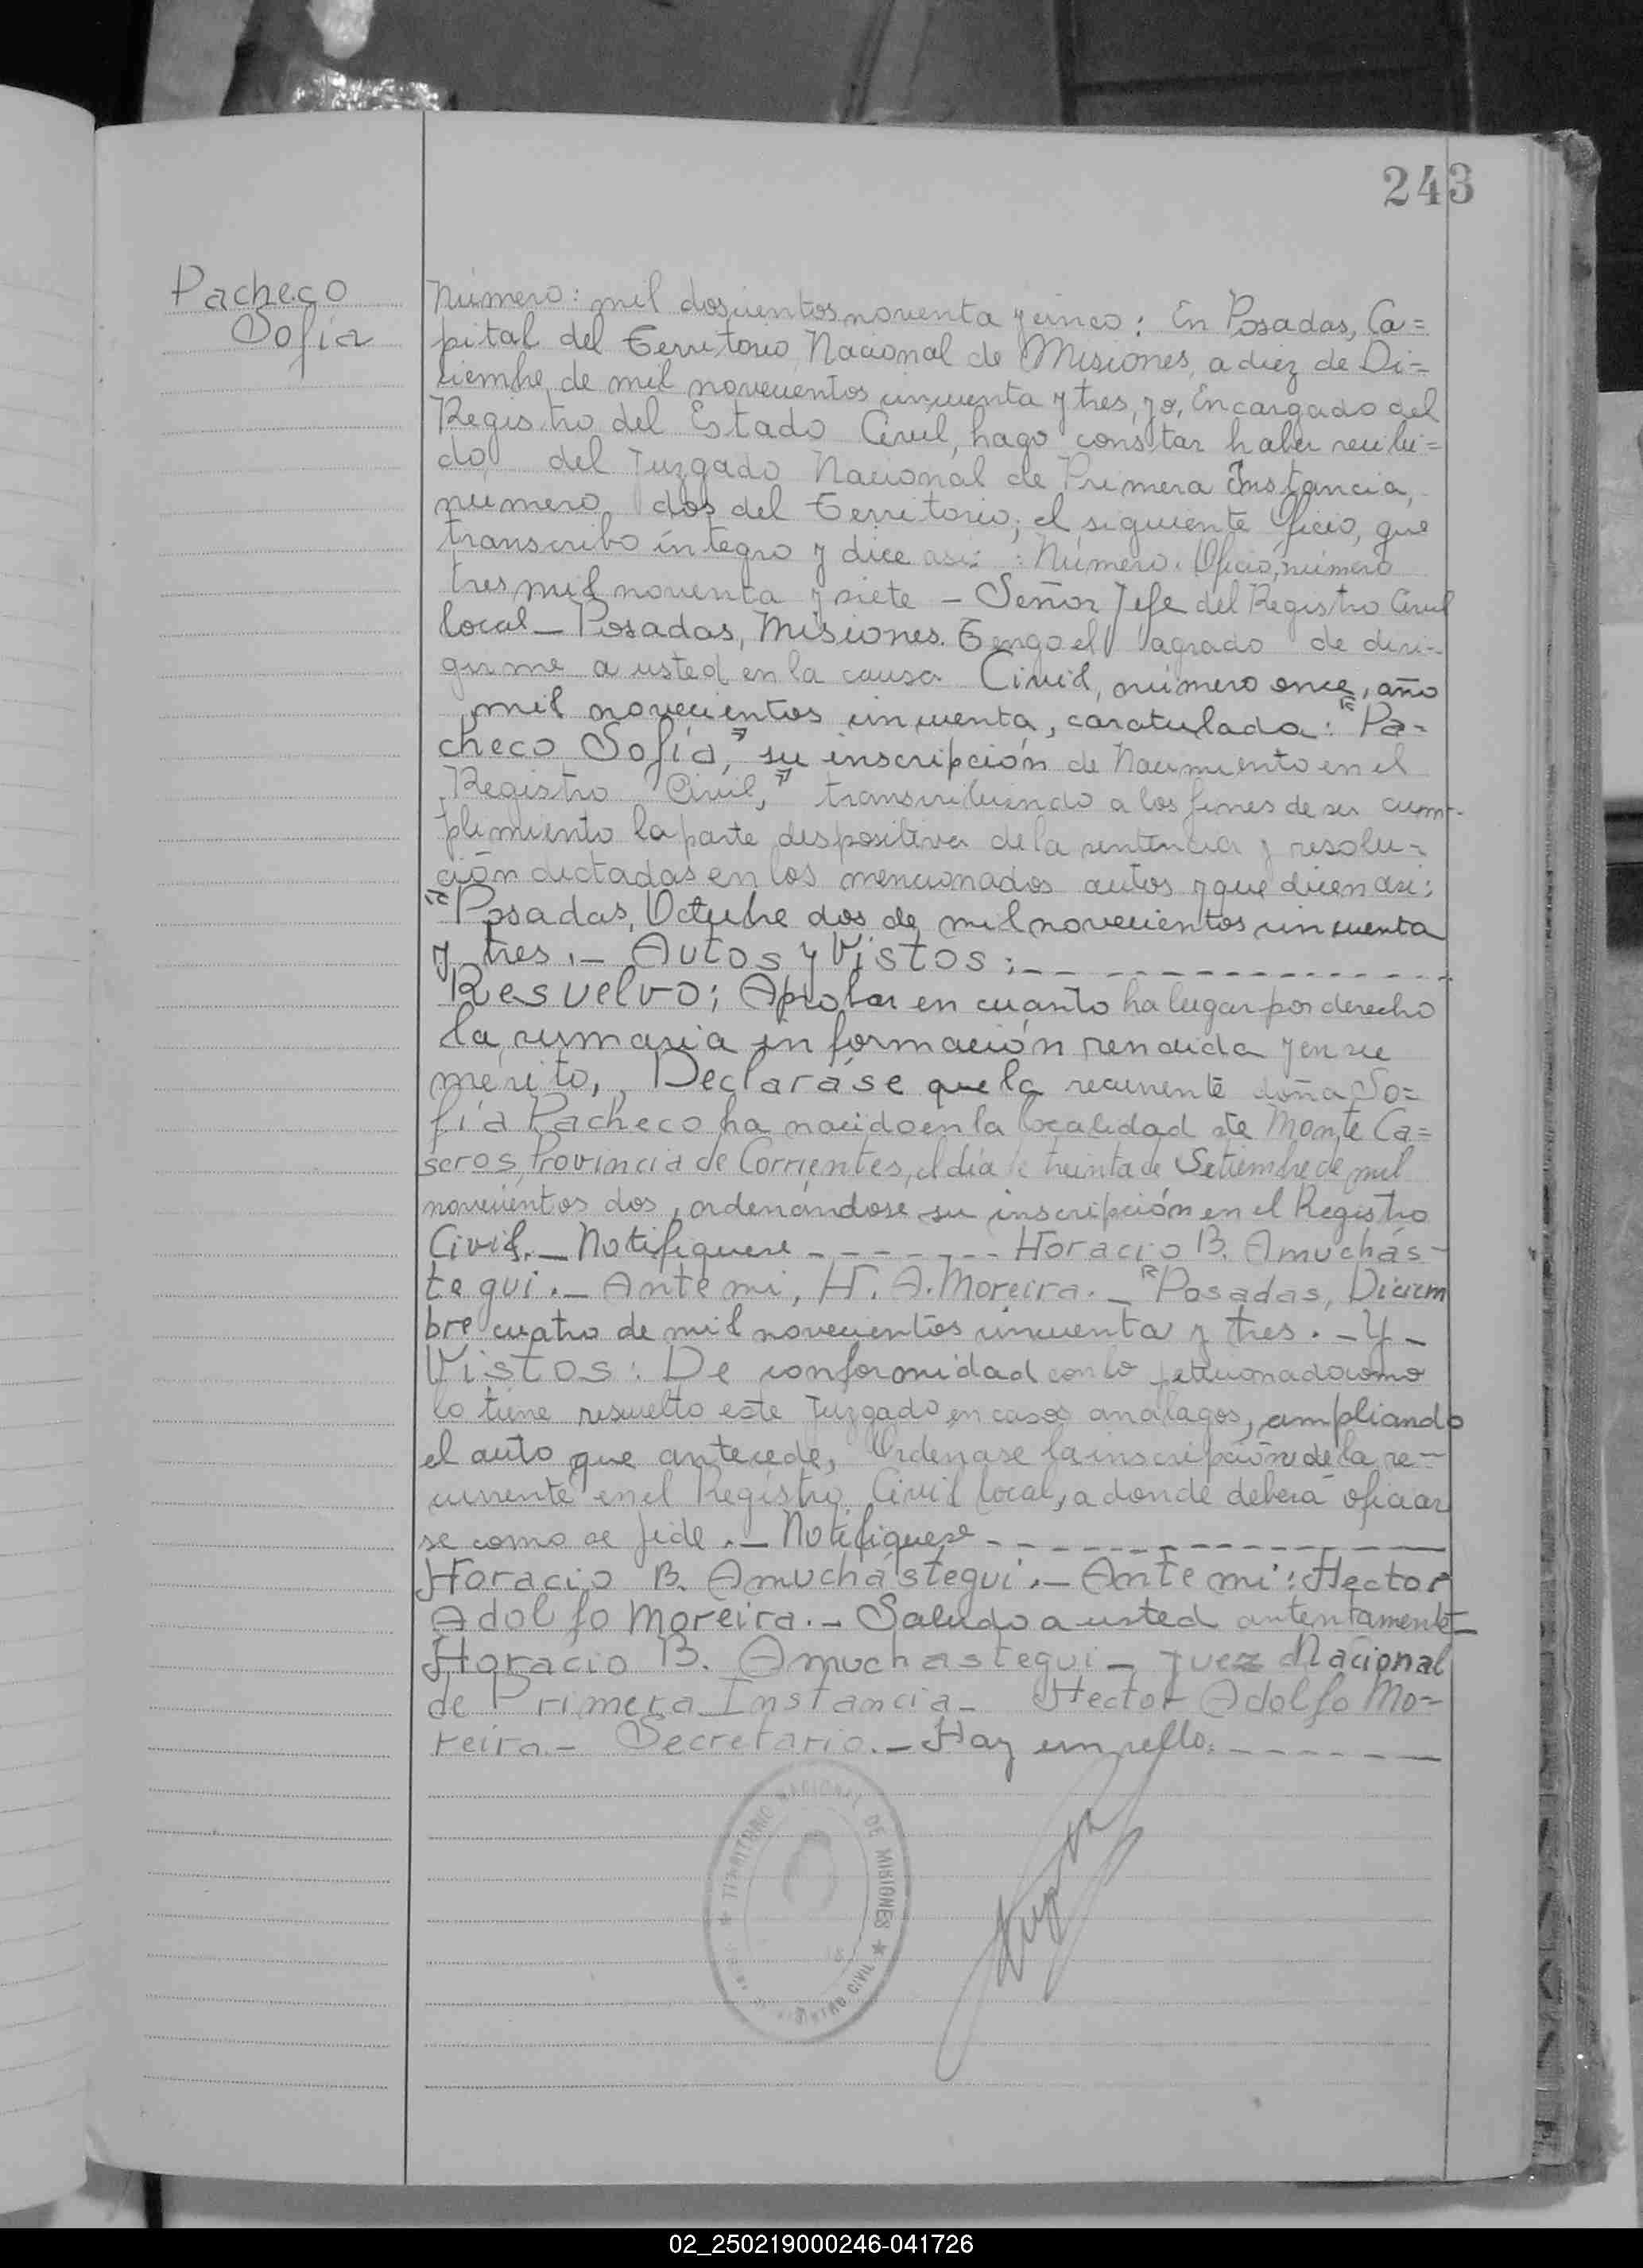 243
Pacheco
Sofía
Número: mil doscientos noventa y cinco: En Posadas, Ca=
pital del Territorio Nacional de Misiones, a diez de Di=
ciembre de mil novecientos cincuenta y tres, yo, Encargado del
Registro del Estado Civil, hago constar haber recibi=
do del Juzgado Nacional de Primera Instancia,
numero dos del Territorio, el siguiente Oficio, que
transcribo íntegro y dice asi: : Número. Oficio, número
tres mil noventa y siete – Señor Jefe del Registro Civil
local – Posadas, Misiones. Tengo el agrado de diri-
girme a usted en la causa Civil, número once, año
mil novecientos cincuenta, caratulada: "Pa=
checo Sofía," su inscripción de Nacimiento en el
Registro Civil," transcribiendo a los fines de su cum-
plimiento la parte dispositiva de la sentencia y resolu=
ción dictadas en los mencionados autos y que dicen asi:
"Posadas, Octubre dos de mil novecientos cincuenta
y tres. – Autos y Vistos: – – – – – – – – – – – –
Resuelvo; Aprobar en cuanto ha lugar por derecho
la sumaria información rendida y en su
mérito, Declaráse que la recurrente doña So=
fía Pacheco ha nacido en la localidad de Monte Ca=
seros, Provincia de Corrientes, el día treinta de Setiembre de mil
novecientos dos, ordenándose su inscripción en el Registro
Civil. – Notifiquese – – – – – – – Horacio B. Amuchás-
tegui. – Ante mi, H. A. Moreira. – "Posadas, Diciem
bre cuatro de mil novecientos cincuenta y tres. – Y –
Vistos: De conformidad con lo peticionado como
lo tiene resuelto este Juzgado en casos análagos, ampliando
el auto que antecede, Ordenase la inscripción de la re-
currente en el Registro Civil local, a donde deberá oficiar
se como se pide. – Notifiquese – – – – – – – – – – –
Horacio B. Amuchástegui. – Ante mi: Hector
Adolfo Moreira. – Saludo a usted antentamente –
Horacio B. Amuchastegui – Juez Nacional
de Primera Instancia – Hector Adolfo Mo=
reira – Secretario. – Hay un sello. – – – – – – –
TERRITORIO NACIONAL DE MISIONES ★
CIVIL
02_250219000246-041726